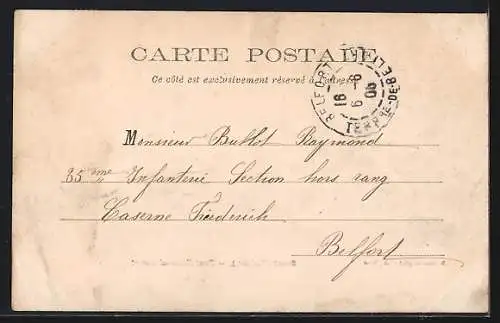 CARTE POSTALE
Ce côté est exclusivement réservé à l'adresse
BELFORT TERRre-DE-BELFORT
16
6 05
Monsieur Bullot Raymond
35 ème Infanterie Section hors rang
Caserne Friederich
Belfort